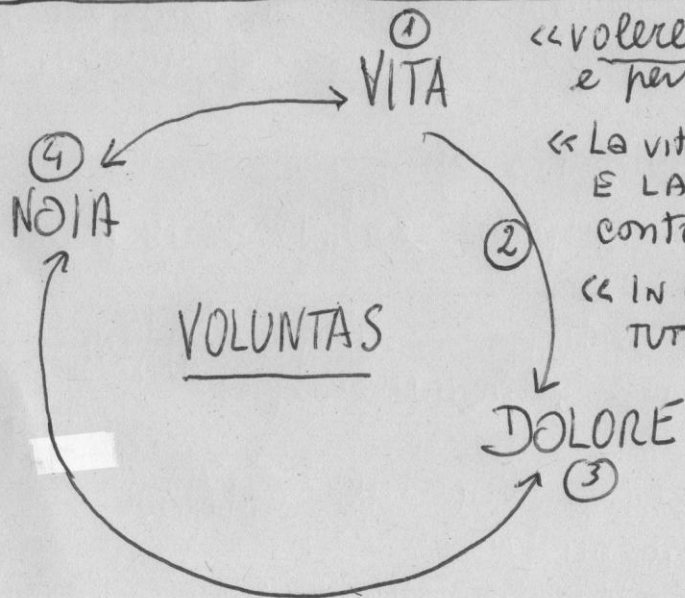 ①
VITA
④
NOIA
②
VOLUNTAS
DOLORE
③
«volere
e per
«La vit
E LA
conte
« IN
TUT